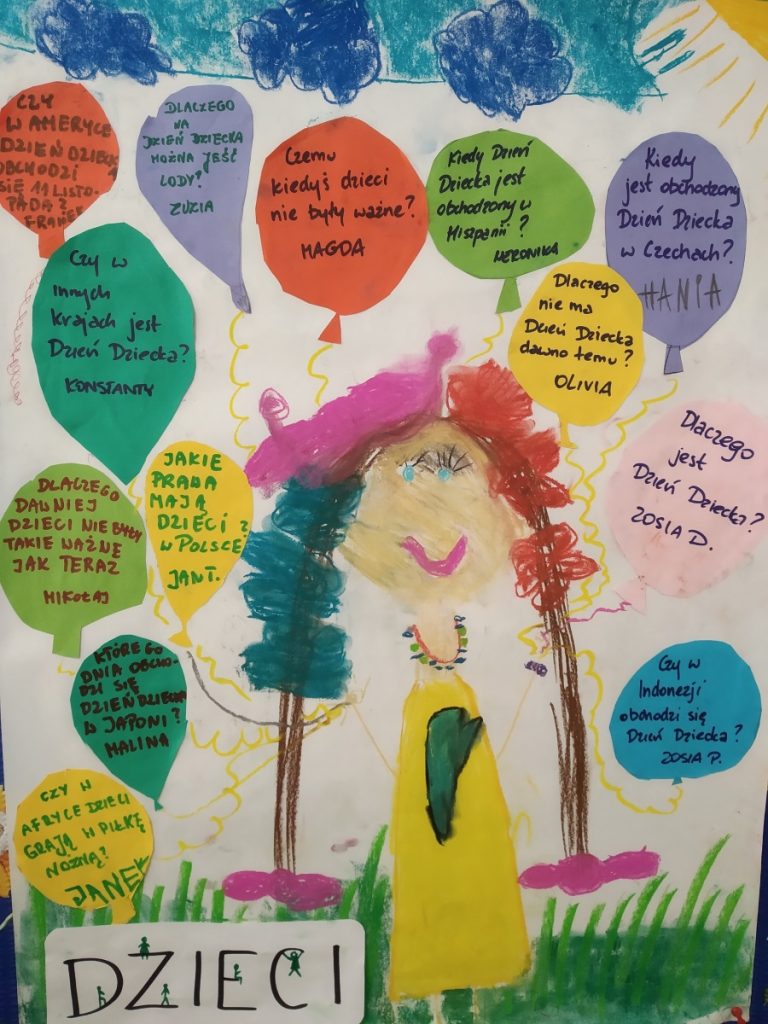 CZY
W AMERYCE
DZIEŃ DZIECKA
OBCHODZI
SIĘ 11 LISTO-
PADA?
FRANEK
DLACZEGO
NA
DZIEŃ DZIECKA
MOŻNA JEŚĆ
LODY?
ZUZIA
Czemu
kiedyś dzieci
nie były ważne?
MAGDA
Kiedy Dzień
Dziecka jest
obchodzony w
Hiszpanii?
WERONIKA
Kiedy
jest obchodzony
Dzień Dziecka
w Czechach?
HANIA
Czy w
innych
krajach jest
Dzień Dziecka?
KONSTANTY
Dlaczego
nie ma
Dzień Dziecka
dawno temu?
OLIVIA
Dlaczego
jest
Dzień Dziecka?
ZOSIA D.
DLACZEGO
DAWNIEJ
DZIECI NIE BYŁY
TAKIE WAŻNE
JAK TERAZ
MIKOŁAJ
JAKIE
PRAWA
MAJĄ
DZIECI
W POLSCE?
JAN T.
KTÓREGO
DNIA OBCHO-
DZI SIĘ
DZIEŃ DZIECKA
W JAPONI?
MALINA
Czy w
Indonezji
obchodzi się
Dzień Dziecka?
ZOSIA P.
CZY W
AFRYCE DZIECI
GRAJĄ W PIŁKĘ
NOŻNĄ?
JANEK
DZIECI